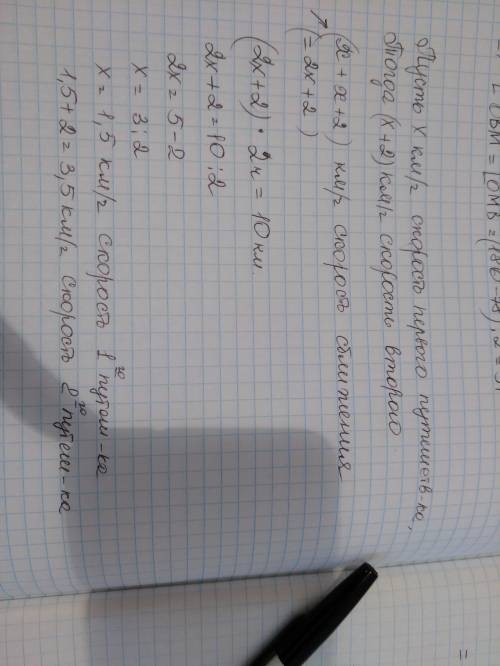 ∠ OBM = ∠OMB =
Пусть х км/г скорость первого путешеств-ка,
Тогда (х+2) км/г скорость второго
(х + х + 2) км/г скорость сближения
(= 2х + 2)
(2х+2) · 2ч = 10 км.
2х + 2 = 10 : 2
2х = 5 - 2
х = 3 : 2
х = 1,5 км/г скорость 1 го путеш-ка
1,5 + 2 = 3,5 км/г скорость 2 го путеш-ка
=